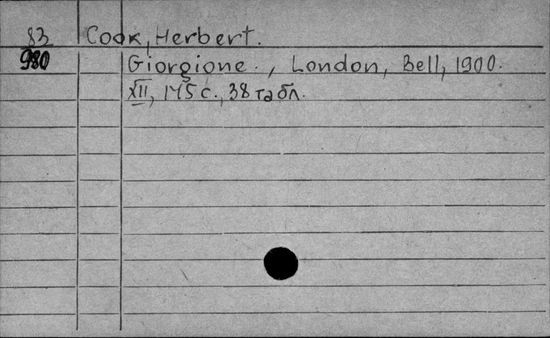 83 Cook, Herbert.
980 Giorgione., London, Bell, 1900.
XII, 175 с., 38 табл.